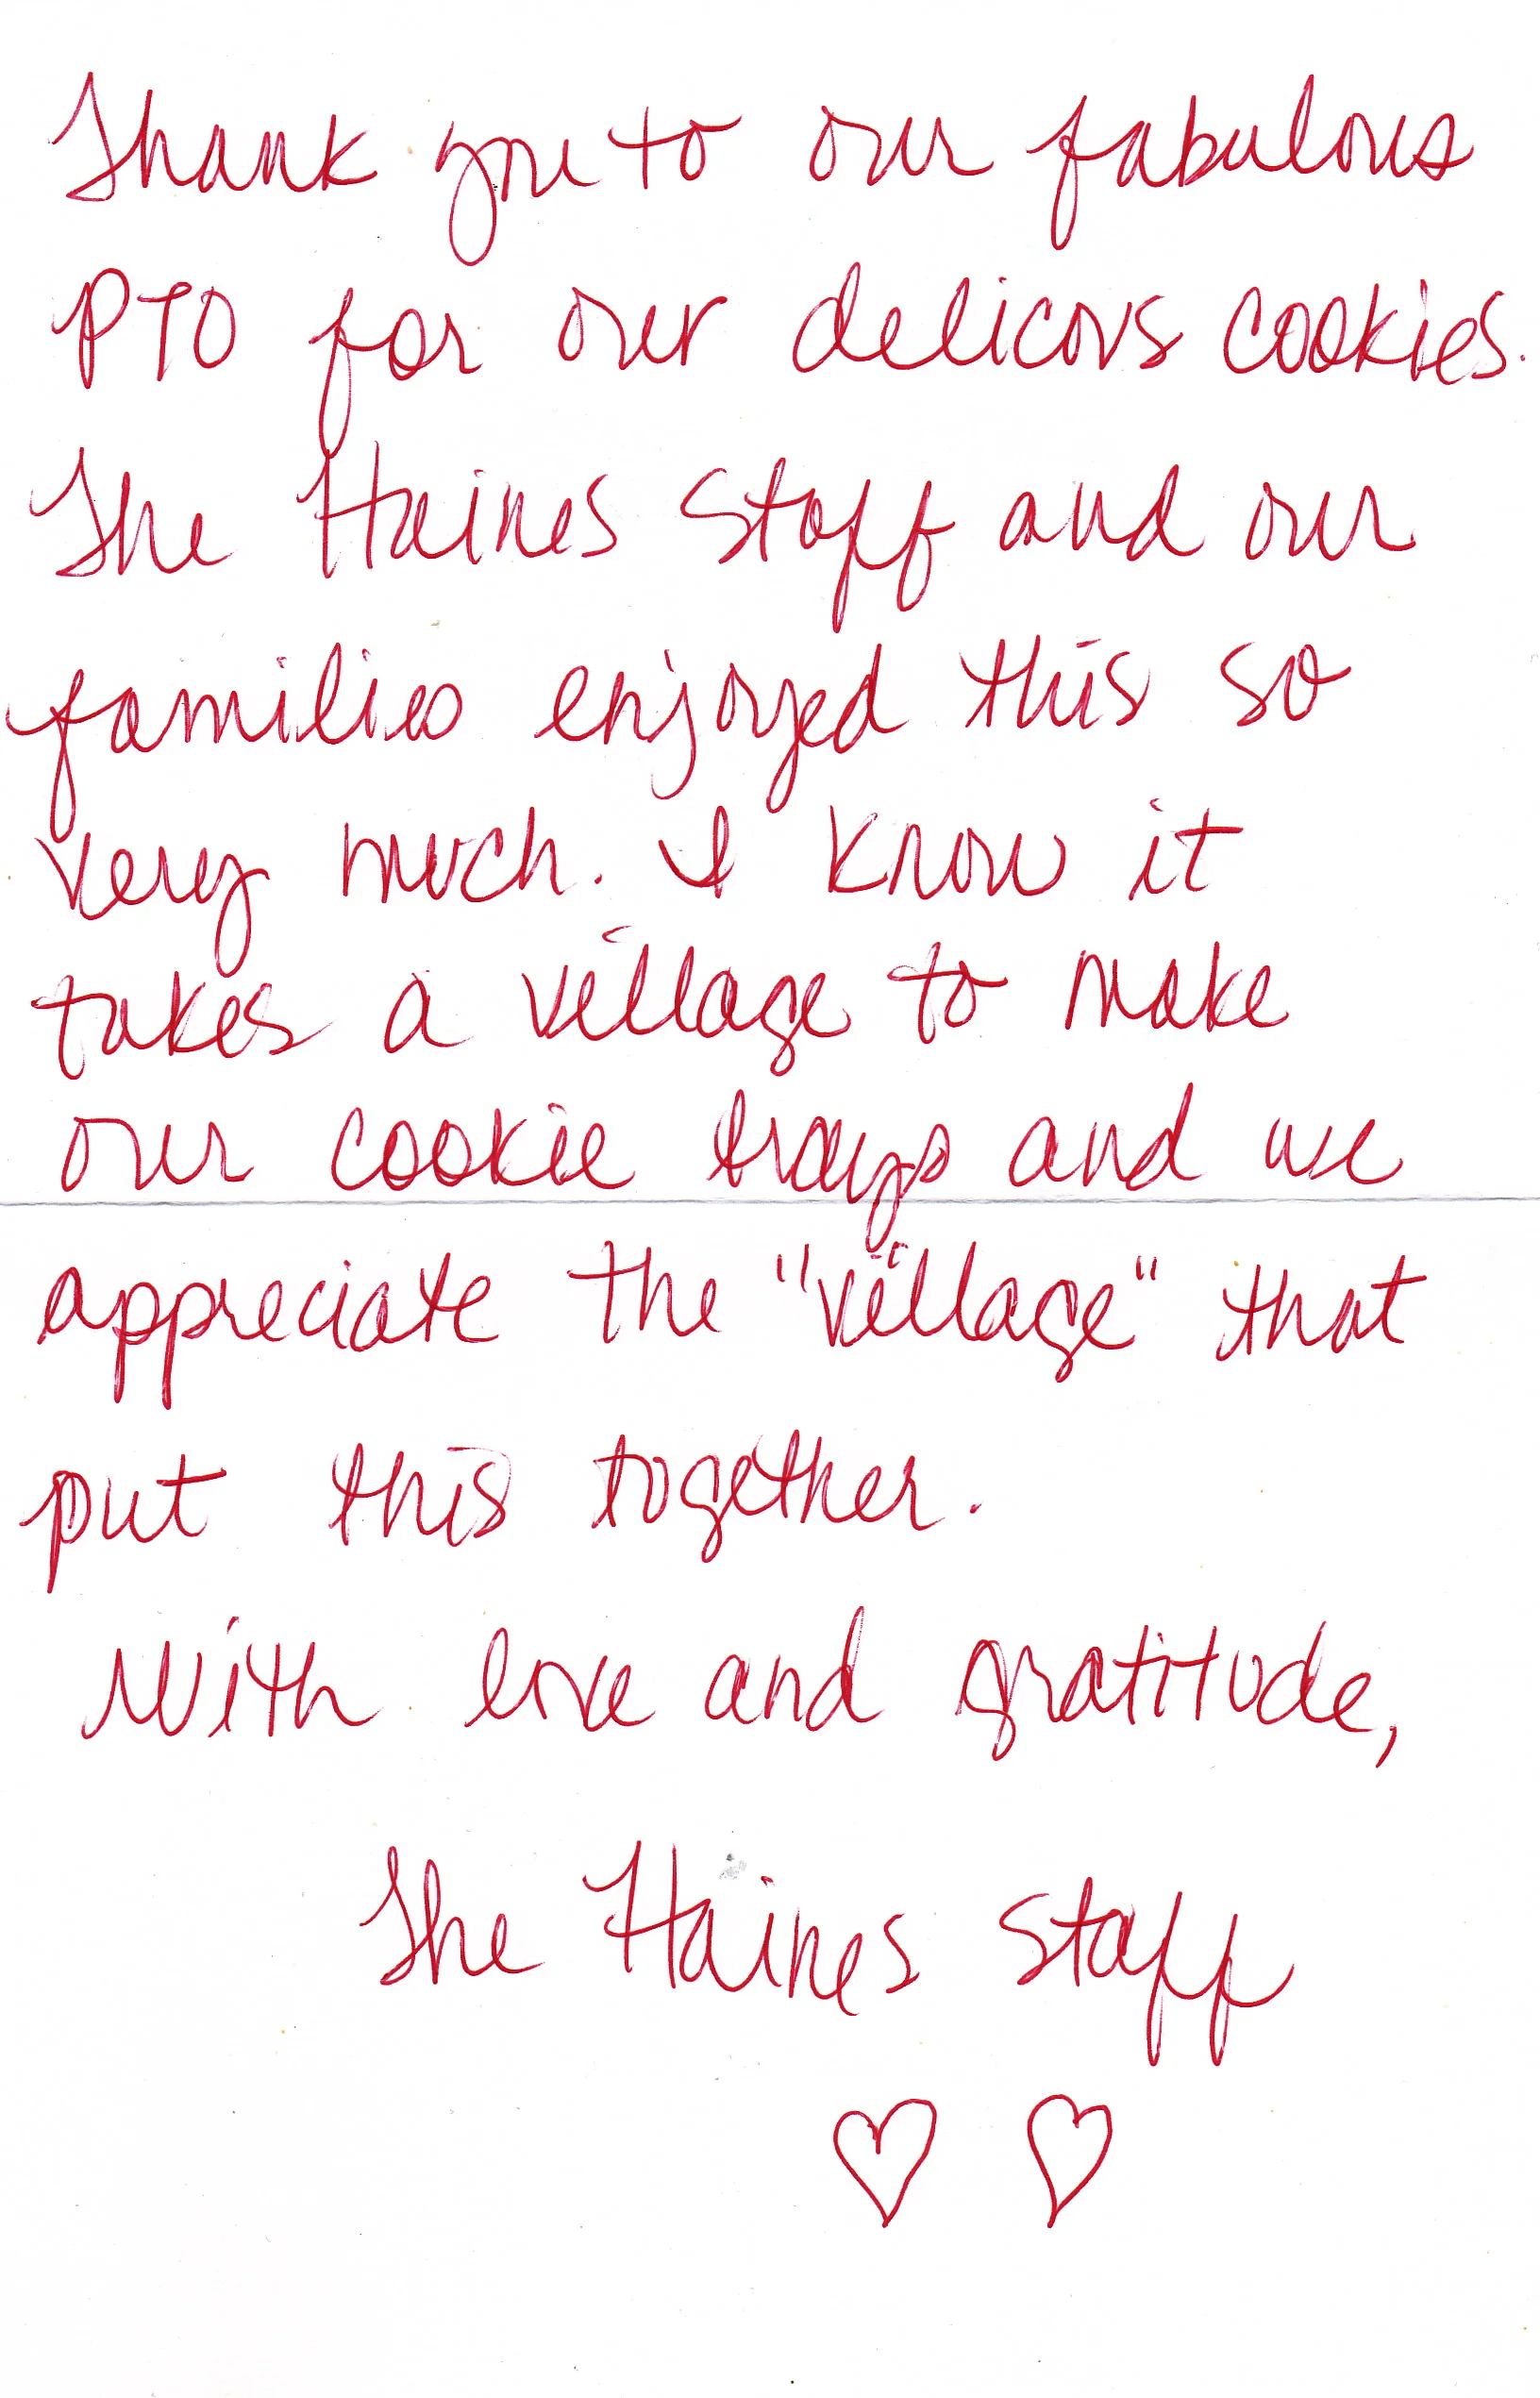 Thank you to our fabulous
PTO for our delicous cookies.
The Haines Staff and our
families enjoyed this so
very much. I know it
takes a village to make
our cookie trays and we
appreciate the "village" that
put this together.
With love and gratitude,
The Haines Staff
♡ ♡